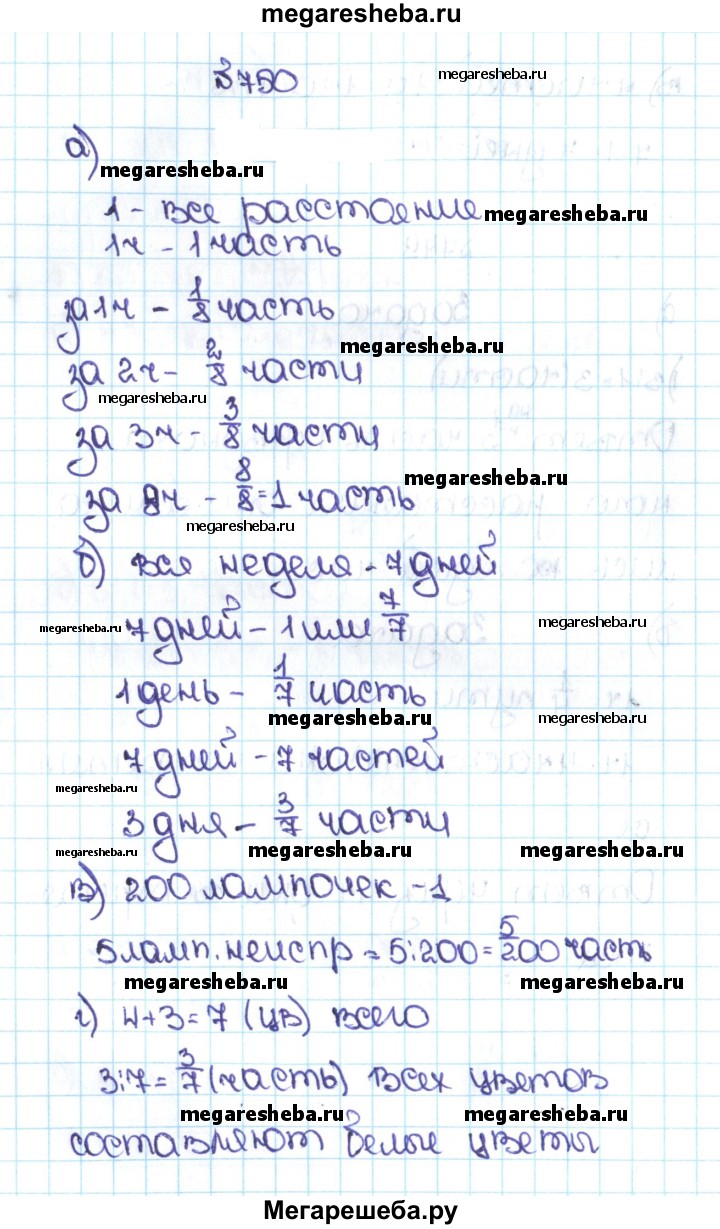 megaresheba.ru
№750
megaresheba.ru
а)
megaresheba.ru
1 - все расстоение
megaresheba.ru
1ч - 1 часть
за 1ч - 1/8 часть
megaresheba.ru
за 2ч - 2/8 части
megaresheba.ru
за 3ч - 3/8 части
megaresheba.ru
за 8ч - 8/8 = 1 часть
megaresheba.ru
б) вся неделя - 7 дней
megaresheba.ru 7 дней - 1 или 7/7 megaresheba.ru
1 день - 1/7 часть
megaresheba.ru megaresheba.ru
7 дней - 7 частей
megaresheba.ru
3 дня - 3/7 части
megaresheba.ru megaresheba.ru megaresheba.ru
в) 200 лампочек - 1
5 ламп. неиспр = 5:200 = 5/200 часть
megaresheba.ru megaresheba.ru
г) 4+3=7 (цв) всего
3:7 = 3/7 (часть) всех цветов
megaresheba.ru megaresheba.ru
составляют белые цветы
Мегарешеба.ру